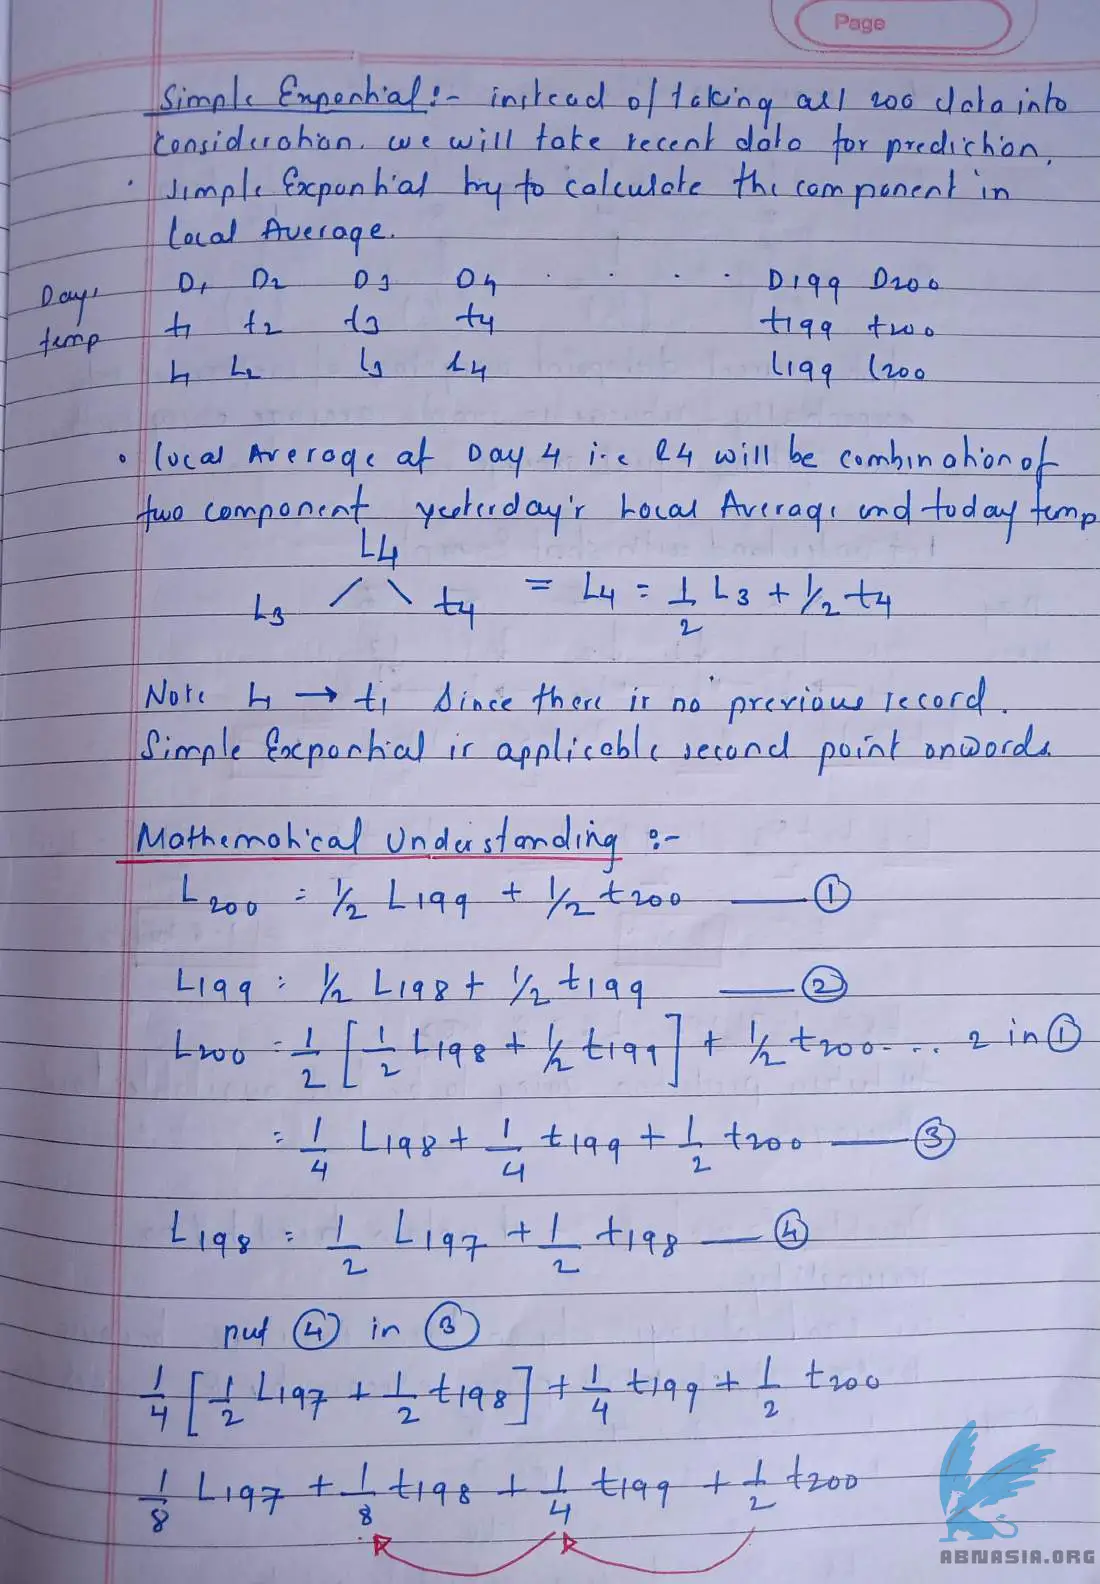 Page
Simple Exponhial :- instead of taking all 200 data into
consideration. we will take recent data for predichion.
. simple Exponhial try to calculate the component in
local Average.
Days D1 D2 D3 D4 . . . . D199 D200
temp t1 t2 t3 t4 t199 t200
L1 L2 L3 L4 L199 L200
• local Average at Day 4 i.e L4 will be combination of
two component yesterday's Local Average and today temp
L4
L3 t4 = L4 = 1/2 L3 + 1/2 t4
Note L1 → t1 Since there is no previous record.
Simple Exponhial is applicable second point onwords.
Mathemahical Understanding :-
L200 = 1/2 L199 + 1/2 t200 — ①
L199 = 1/2 L198 + 1/2 t199 — ②
L200 = 1/2 [1/2 L198 + 1/2 t199] + 1/2 t200 .... 2 in ①
= 1/4 L198 + 1/4 t199 + 1/2 t200 — ③
L198 = 1/2 L197 + 1/2 t198 — ④
put ④ in ③
1/4 [1/2 L197 + 1/2 t198] + 1/4 t199 + 1/2 t200
1/8 L197 + 1/8 t198 + 1/4 t199 + 1/2 t200
ABNASIA.ORG